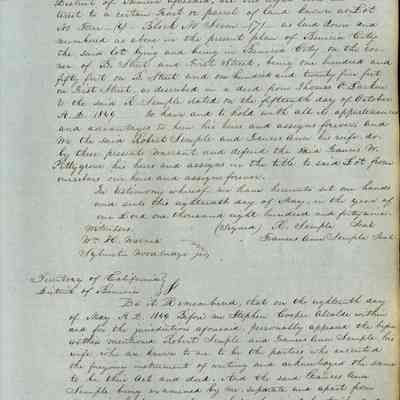 District of Benicia aforesaid, all our right
terest to a certain Track or parcel of land known as Lot
No Four (4) Block No Seven (7) as laid down and
numbered as above in the present plan of Benicia City
the said lot lying and being in Benicia City on the cor-
ner of D. Street and First Street, being one hundred and
fifty feet on D Street and one hundred and twenty five feet
on First Street, as described in a deed from Thomas O. Larkin
to the said R. Semple dated on the fifteenth day of October
A.D. 1849 To have and to hold with all its appurtenances
and advantages to him his heirs and assigns forever and
We the said Robert Semple and Frances Ann his wife do
by these presents warrant and defend the said Francis W.
Pettygrove his heirs and assigns in the title to said Lot from
ourselves our heirs and assigns forever.
In testimony whereof we have hereunto set our hands
and seals the eighteenth day of May, in the year of
our Lord one thousand eight hundred and forty nine.
Witnesses (Signed) R. Semple Seal
Wm H. Frances Ann Semple Seal
Sylvester Woodbridge Jr
Territory of California
District of Benicia
Be it Remembered, that on the eighteenth day
of May A.D. 1849 Before me Stephen Cooper Alcalde within
and for the jurisdiction aforesaid, personally appeared the
within mentioned Robert Semple and Frances Ann Semple his
wife who are known to me to be the parties who executed
the foregoing instrument of writing and acknowledged the same
to be their Act and deed. And the said Frances Ann
Semple being examined by me separate and apart from